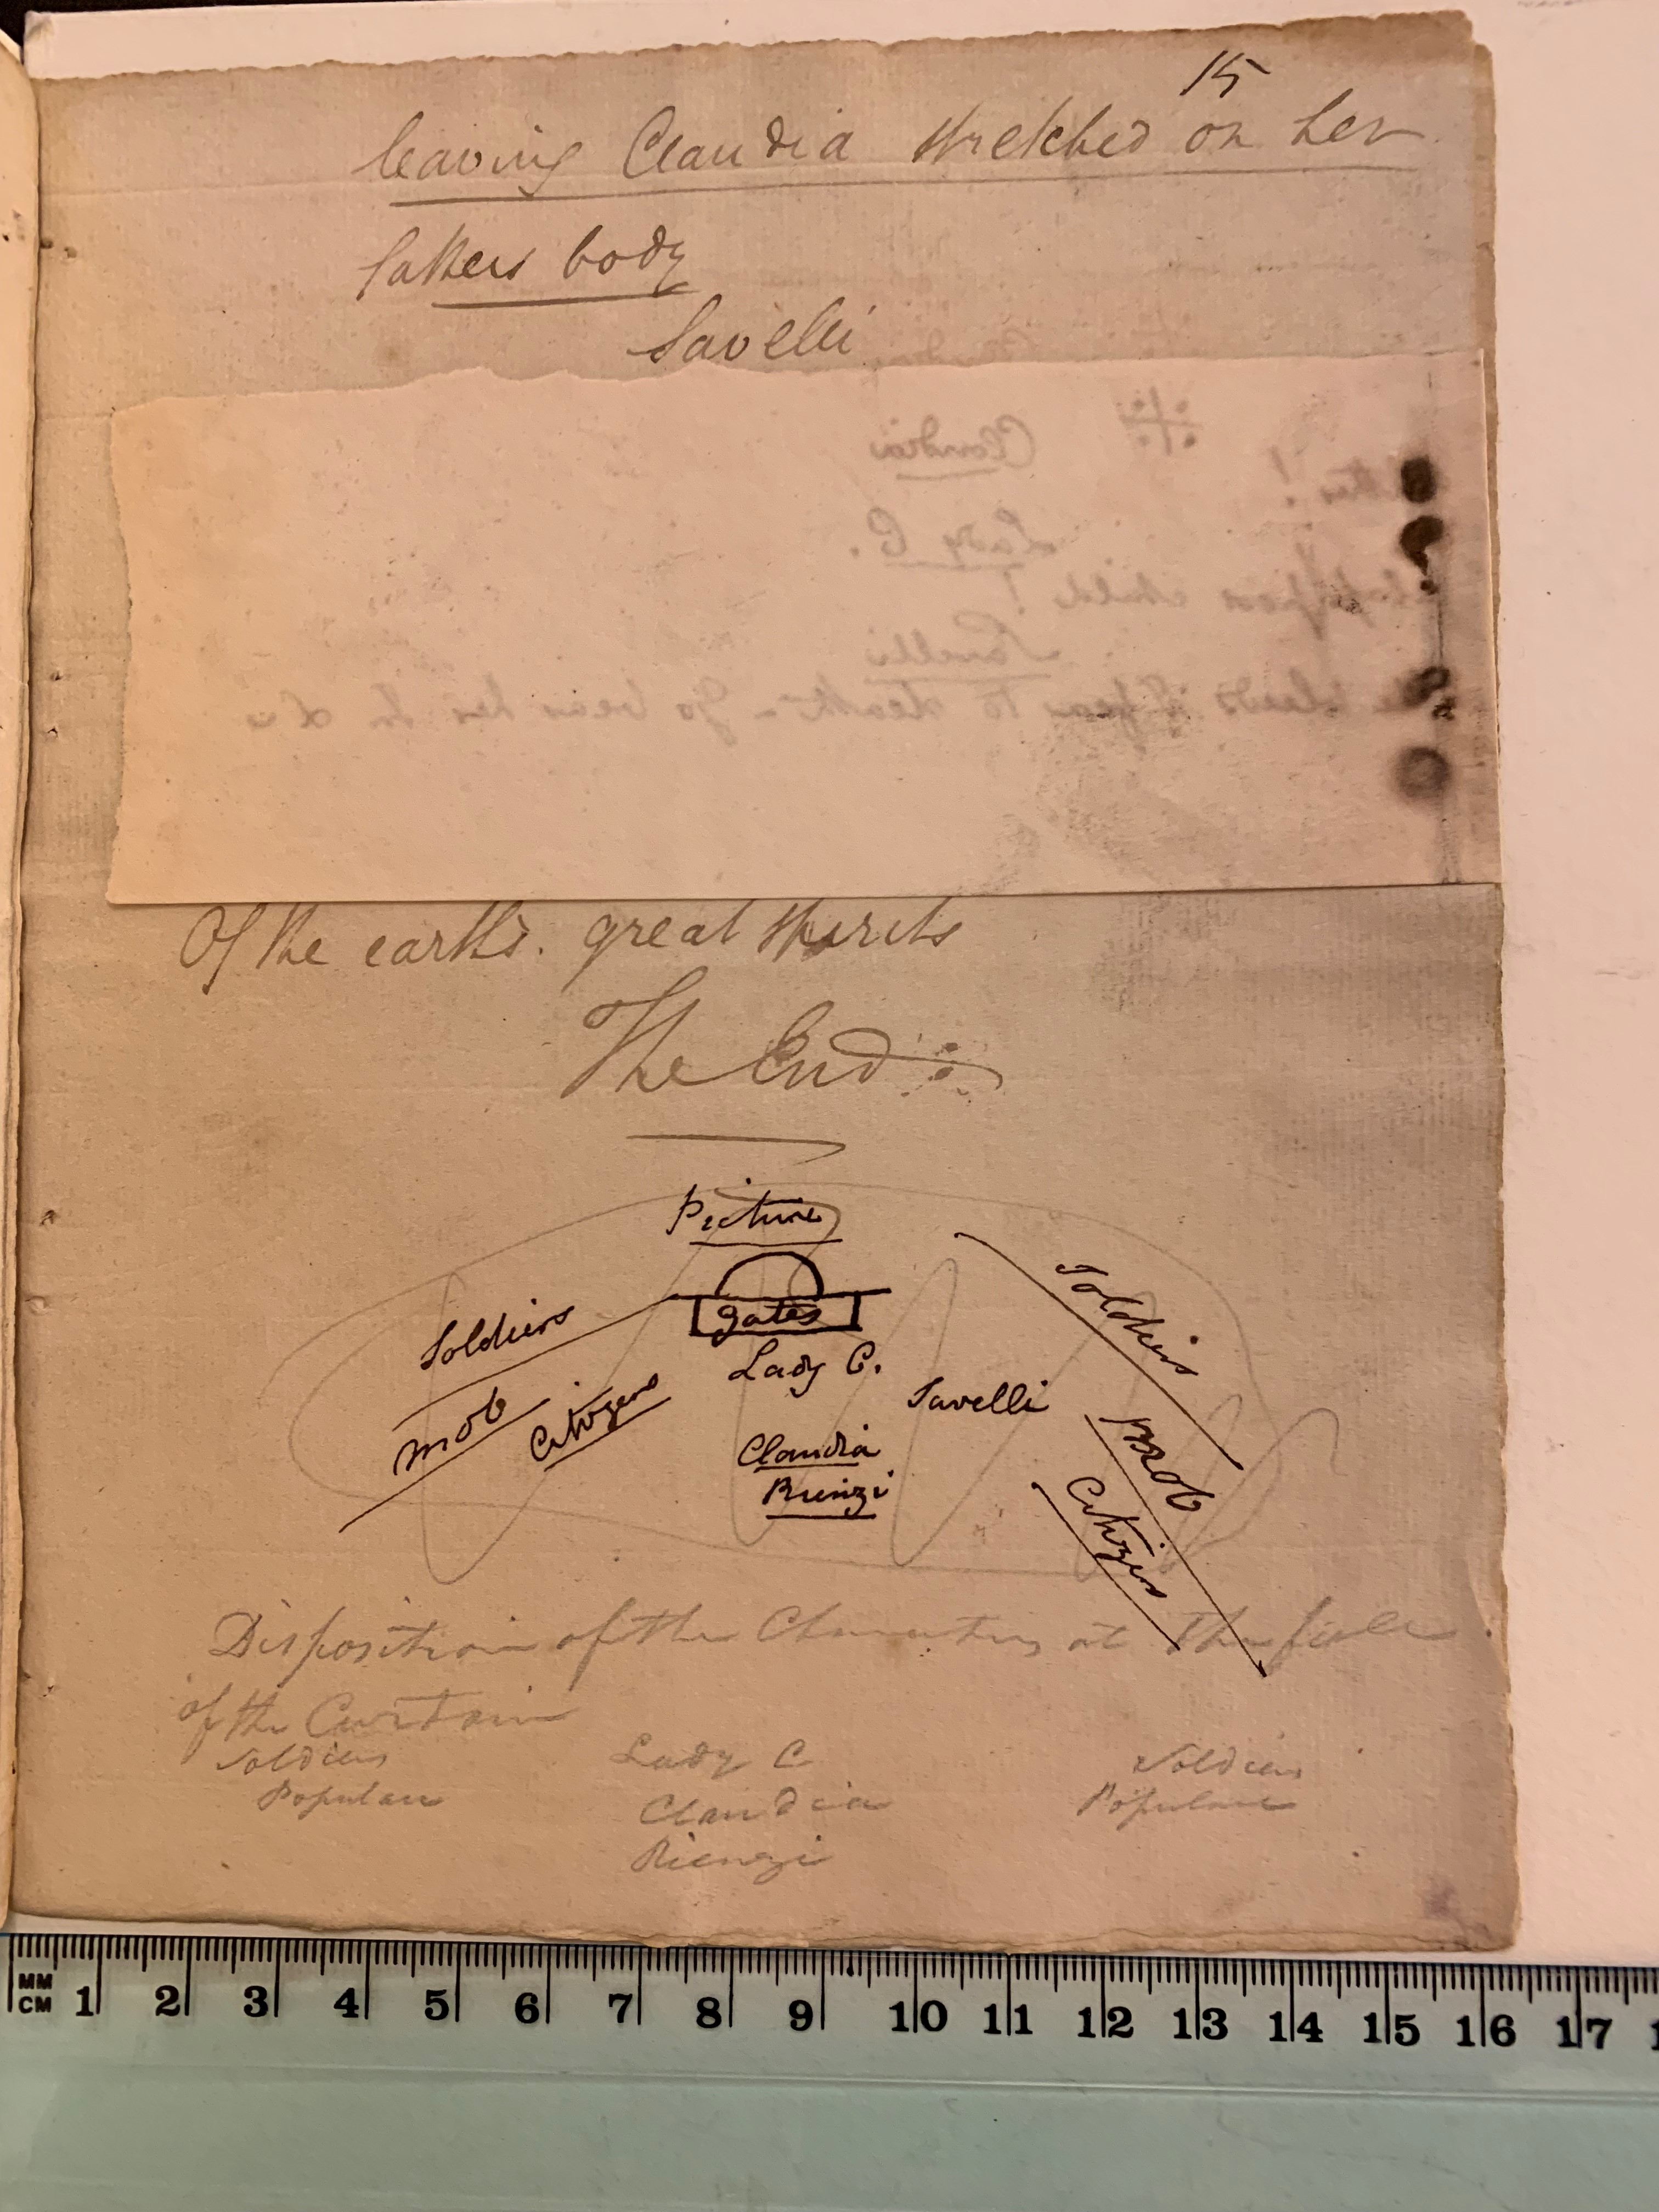 15
leaving Claudia stretched on her
fathers body
Savelli
Claudia
Lady C.
child!
Savelli
to death - go bear her
Of the earths. great spirits
The End
Picture
gates
Soldiers
Soldiers
Lady C.
Savelli
mob
Citizens
Claudia
Rienzi
mob
Citizens
Disposition of the Characters at the fall
of the Curtain
Soldiers Lady C Soldiers
Populace Claudia Populace
Rienzi
MM
CM 1 2 3 4 5 6 7 8 9 10 11 12 13 14 15 16 17